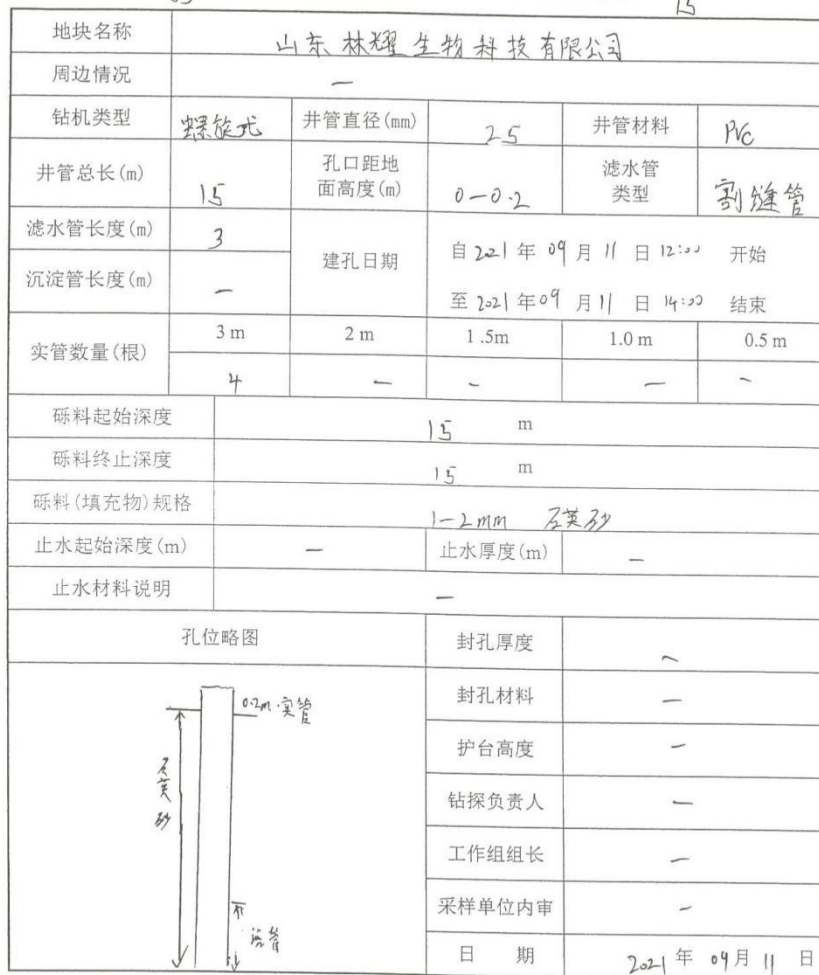 15
地块名称 山东林耀生物科技有限公司
周边情况 —
钻机类型 螺旋式 井管直径(mm) 25 井管材料 PVC
井管总长(m) 15 孔口距地面高度(m) 0-0.2 滤水管类型 割缝管
滤水管长度(m) 3 建孔日期 自 2021 年 09 月 11 日 12:00 开始
沉淀管长度(m) — 至 2021 年 09 月 11 日 14:00 结束
实管数量(根) 3 m 2 m 1.5m 1.0 m 0.5 m
4 — — — —
砾料起始深度 15 m
砾料终止深度 15 m
砾料(填充物)规格 1-2mm 石英砂
止水起始深度(m) — 止水厚度(m) —
止水材料说明 —
孔位略图 封孔厚度 —
0.2m 实管
封孔材料 —
护台高度 —
石英砂
钻探负责人 —
工作组组长 —
采样单位内审 —
日 期 2021 年 09 月 11 日